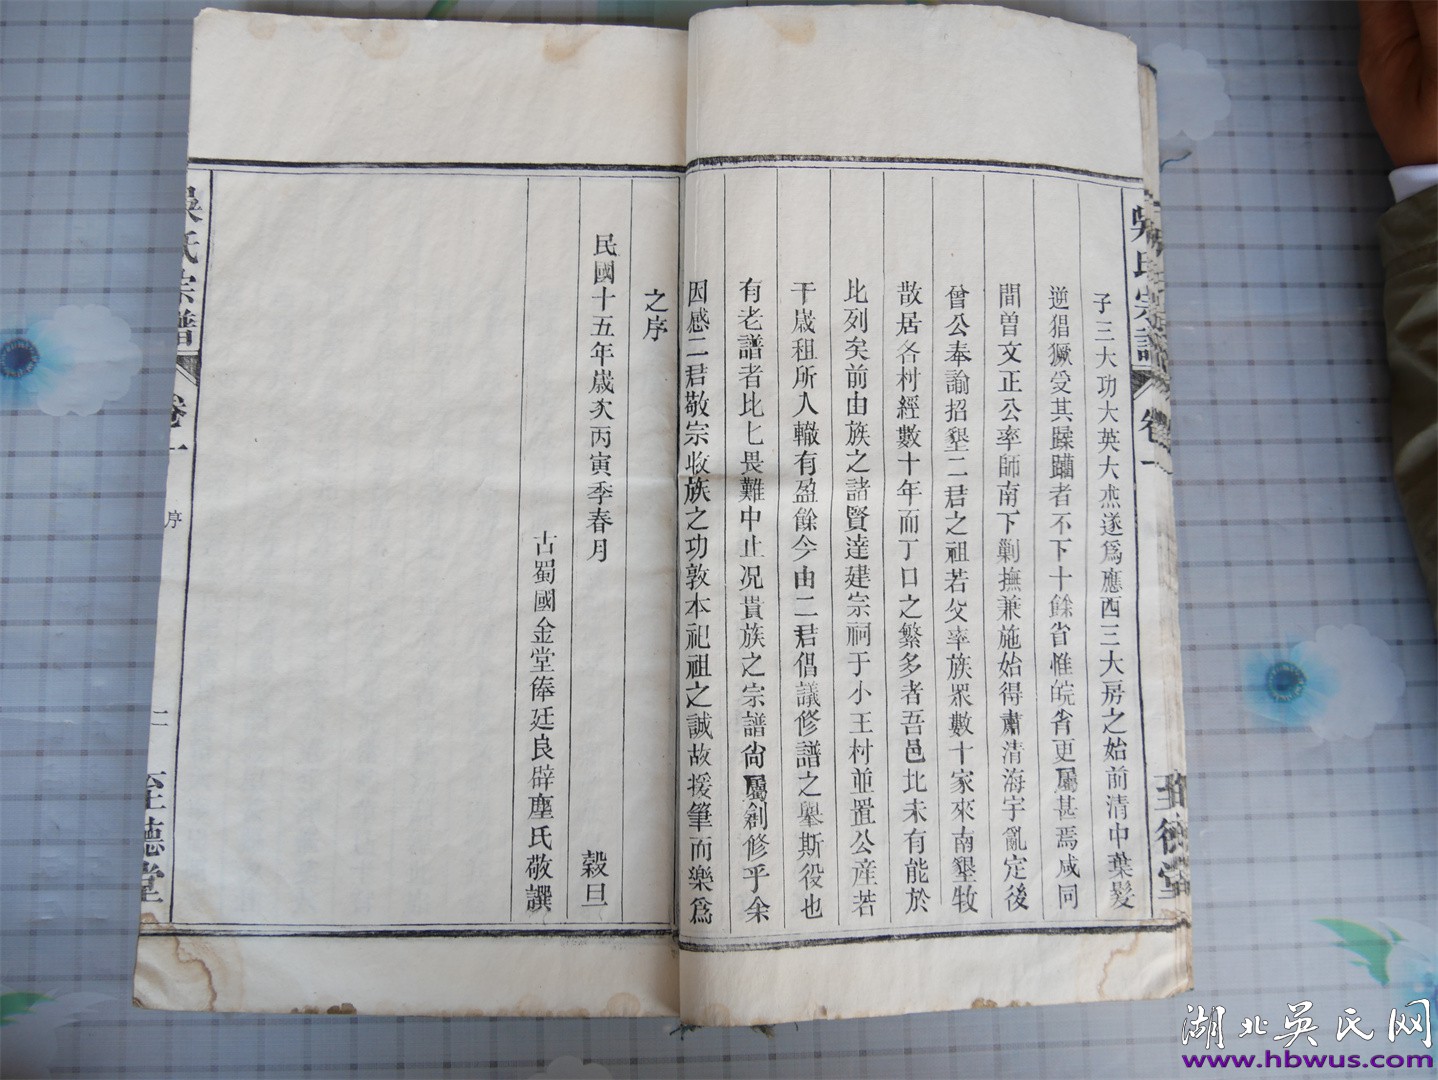 子三大功大英大杰遂爲應西三大房之始前清中葉髮
逆猖獗受其蹂躪者不下十餘省惟皖省更屬甚焉咸同
間曽文正公率師南下剿撫兼施始得肅清海宇亂定後
曾公奉諭招墾二君之祖若父率族眾數十家來南墾牧
散居各村經數十年而丁口之繁多者吾邑比未有能於
比列矣前由族之諸賢達建宗祠于小王村並置公産若
干歲租所入轍有盈餘今由二君倡議修譜之舉斯役也
有老譜者比匕畏難中止况貴族之宗譜尙屬創修乎余
因感二君敬宗收族之功敦本祀祖之誠故援筆而樂爲
之序
民國十五年歲次丙寅季春月 穀旦
古蜀國金堂俸廷良辟塵氏敬譔
吳氏宗譜 卷一 序 二 至德堂
吳氏宗譜 卷一
湖北吴氏网
www.hbwus.com